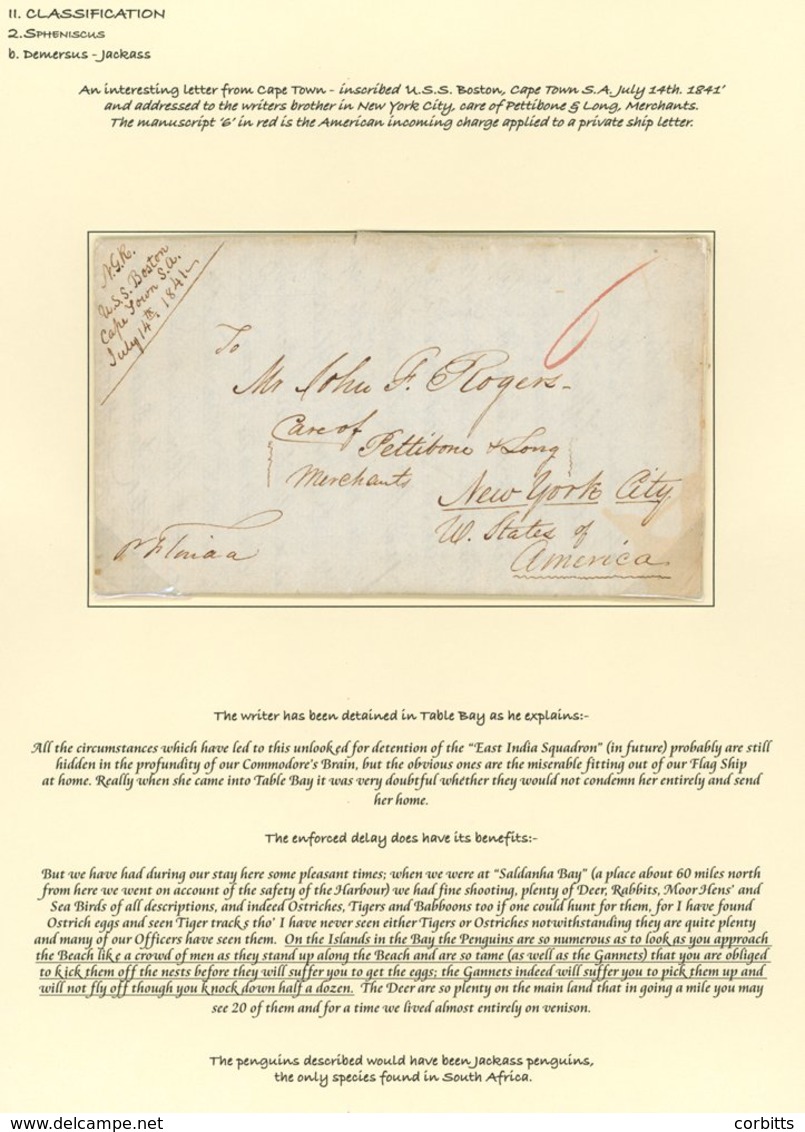 II. CLASSIFICATION
2. SPHENISCUS
b. Demersus - Jackass
An interesting letter from Cape Town - inscribed U.S.S. Boston, Cape Town S.A. July 14th. 1841'
and addressed to the writers brother in New York City, care of Pettibone & Long, Merchants.
The manuscript '6' in red is the American incoming charge applied to a private ship letter.
N.G.R.
U.S.S. Boston
Cape Town S.A.
July 14th, 1841.
6
To
Mr John F. Rogers-
Care of
Pettibone & Long
Merchants
New York City
U. States of
America
The writer has been detained in Table Bay as he explains:-
All the circumstances which have led to this unlooked for detention of the "East India Squadron" (in future) probably are still
hidden in the profundity of our Commodore's Brain, but the obvious ones are the miserable fitting out of our Flag Ship
at home. Really when she came into Table Bay it was very doubtful whether they would not condemn her entirely and send
her home.
The enforced delay does have its benefits:-
But we have had during our stay here some pleasant times; when we were at "Saldanha Bay" (a place about 60 miles north
from here we went on account of the safety of the Harbour) we had fine shooting, plenty of Deer, Rabbits, Moor Hens' and
Sea Birds of all descriptions, and indeed Ostriches, Tigers and Babboons too if one could hunt for them, for I have found
Ostrich eggs and seen Tiger tracks tho' I have never seen either Tigers or Ostriches notwithstanding they are quite plenty
and many of our Officers have seen them. On the Islands in the Bay the Penguins are so numerous as to look as you approach
the Beach like a crowd of men as they stand up along the Beach and are so tame (as well as the Gannets) that you are obliged
to kick them off the nests before they will suffer you to get the eggs; the Gannets indeed will suffer you to pick them up and
will not fly off though you knock down half a dozen. The Deer are so plenty on the main land that in going a mile you may
see 20 of them and for a time we lived almost entirely on venison.
The penguins described would have been Jackass penguins,
the only species found in South Africa.
delcampe.net
corbitts